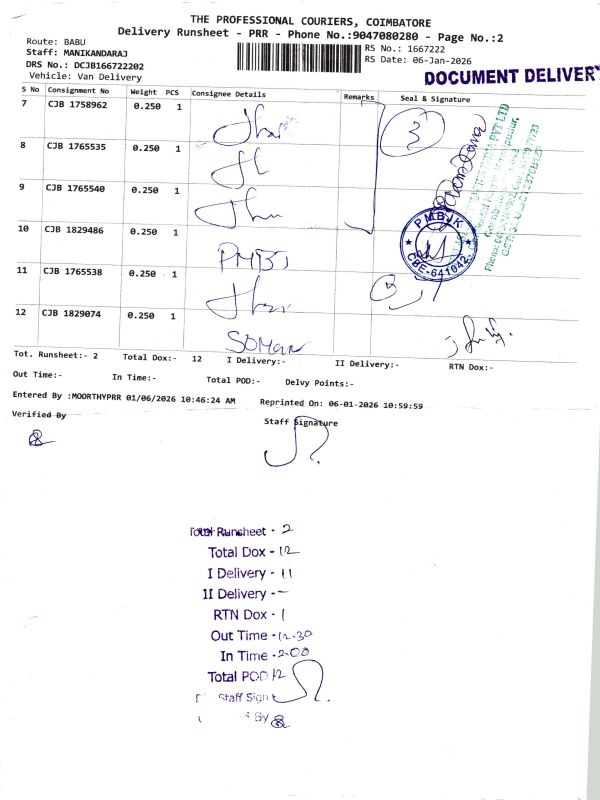 THE PROFESSIONAL COURIERS, COIMBATORE
Delivery Runsheet - PRR - Phone No.:9047080280 - Page No.:2
Route: BABU
RS No.: 1667222
Staff: MANIKANDARAJ
RS Date: 06-Jan-2026
DRS No.: DCJB166722202
Vehicle: Van Delivery
DOCUMENT DELIVERY
S No Consignment No Weight PCS Consignee Details Remarks Seal & Signature
7 CJB 1758962 0.250 1
3
8 CJB 1765535 0.250 1
9 CJB 1765540 0.250 1
10 CJB 1829486 0.250 1
PMBJK
CBE-641042
11 CJB 1765538 0.250 1
12 CJB 1829074 0.250 1
Tot. Runsheet:- 2 Total Dox:- 12 I Delivery:- II Delivery:- RTN Dox:-
Out Time:- In Time:- Total POD:- Delvy Points:-
Entered By :MOORTHYPRR 01/06/2026 10:46:24 AM Reprinted On: 06-01-2026 10:59:59
Verified By
Staff Signature
Total Runsheet - 2
Total Dox - 12
I Delivery - 11
II Delivery - -
RTN Dox - 1
Out Time - 12.30
In Time - 2.00
Total POD 12
Staff Sign
By